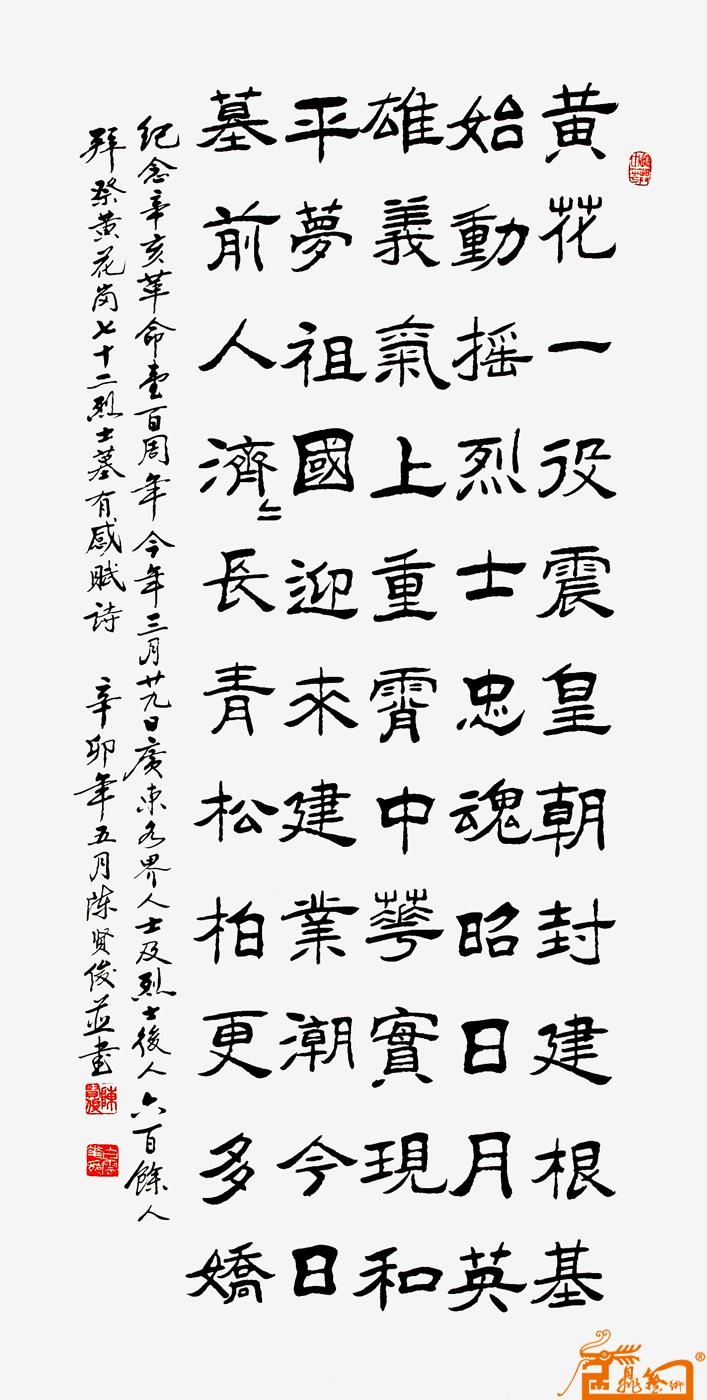 黄花一役震皇朝封建根基
始動摇烈士忠魂昭日月英
雄義氣上重霄中華實現和
平夢祖國迎來建業潮今日
墓前人濟〻長青松柏更多嬌
纪念辛亥革命壹百周年今年三月廿九日廣东各界人士及烈士後人六百餘人
拜祭黄花岗七十二烈士墓有感賦诗 辛卯年五月陈贤俊並書